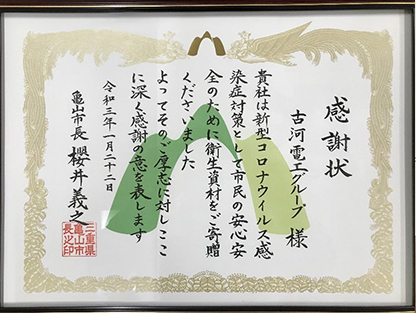 感謝状
古河電工グループ 様
貴社は新型コロナウイルス感
染症対策として市民の安心安
全のために衛生資材をご寄贈
くださいました
よってそのご厚志に対しここ
に深く感謝の意を表します
令和三年一月二十二日
亀山市長 櫻井義之
三重県
亀山市
長之印